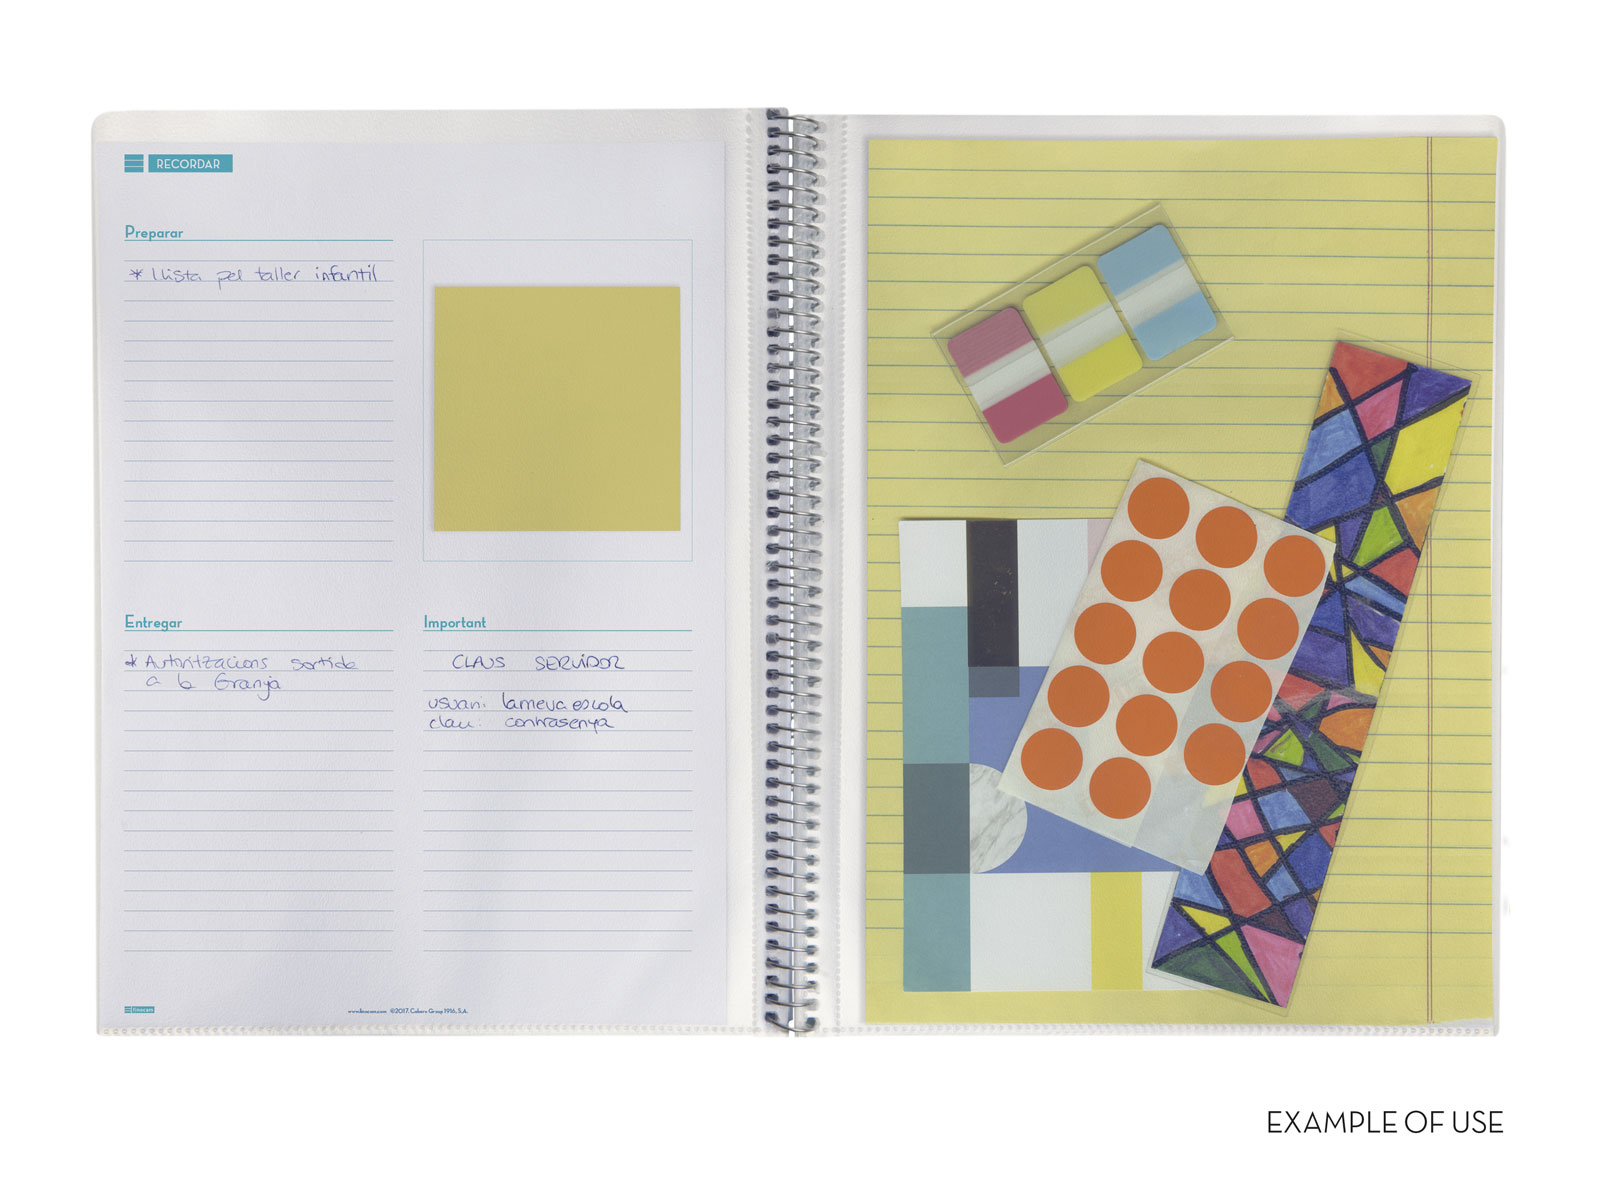 RECORDAR
Preparar
* Llista pel taller infantil
Entregar
* Autoritzacions sortida
a la Granja
Important
CLAUS SERVIDOR
usuari: lameva escola
clau: contrasenya
finocam
www.finocam.com ©2017. Cabero Group 1916, S.A.
EXAMPLE OF USE